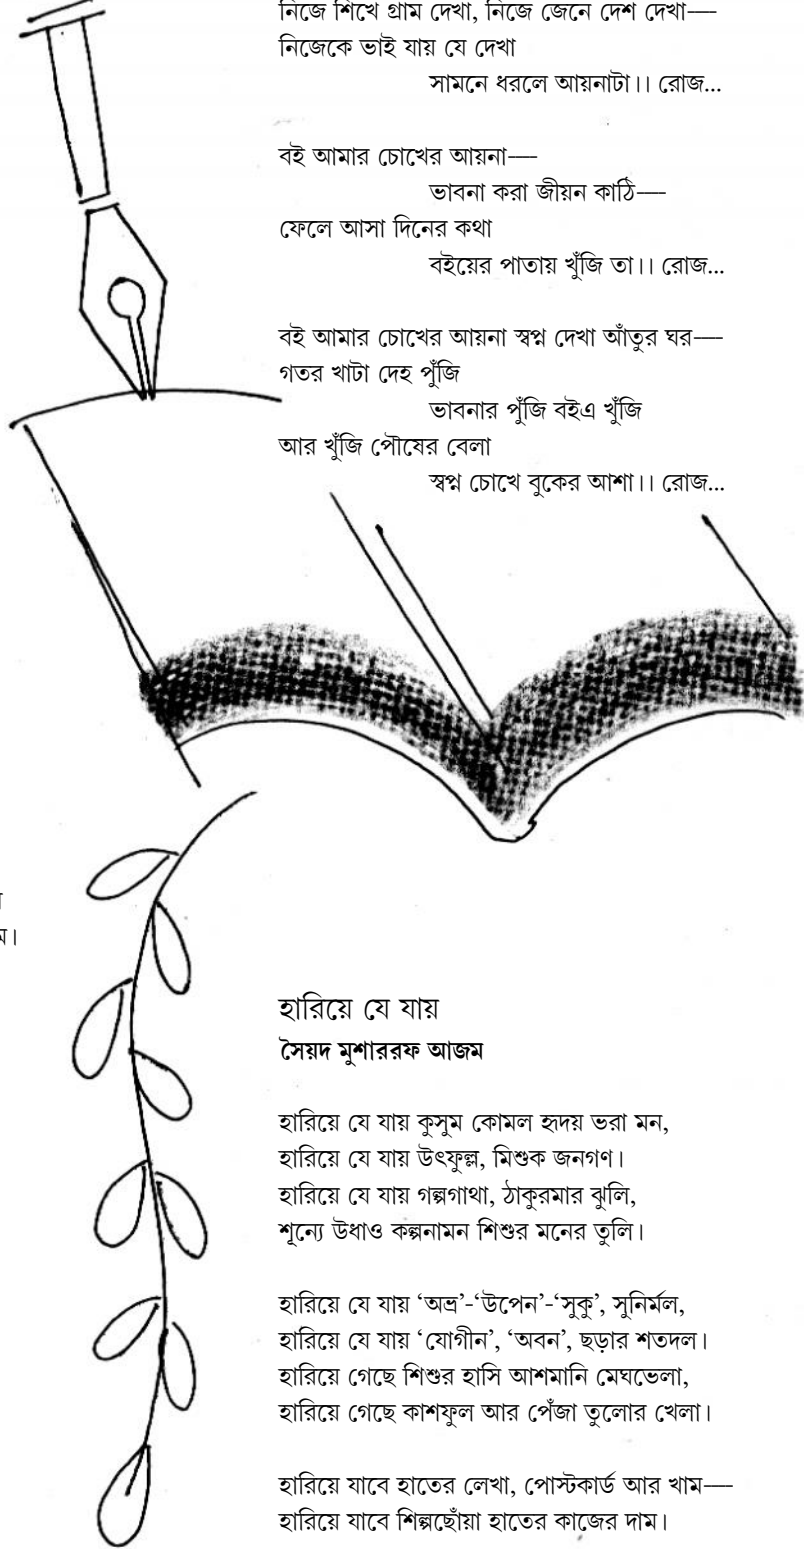 নিজে শিখে গ্রাম দেখা, নিজে জেনে দেশ দেখা—
নিজেকে ভাই যায় যে দেখা
সামনে ধরলে আয়নাটা।। রোজ...
বই আমার চোখের আয়না—
ভাবনা করা জীয়ন কাঠি—
ফেলে আসা দিনের কথা
বইয়ের পাতায় খুঁজি তা।। রোজ...
বই আমার চোখের আয়না স্বপ্ন দেখা আঁতুর ঘর—
গতর খাটা দেহ পুঁজি
ভাবনার পুঁজি বইএ খুঁজি
আর খুঁজি পৌষের বেলা
স্বপ্ন চোখে বুকের আশা।। রোজ...
হারিয়ে যে যায়
সৈয়দ মুশাররফ আজম
হারিয়ে যে যায় কুসুম কোমল হৃদয় ভরা মন,
হারিয়ে যে যায় উৎফুল্ল, মিশুক জনগণ।
হারিয়ে যে যায় গল্পগাথা, ঠাকুরমার ঝুলি,
শূন্যে উধাও কল্পনামন শিশুর মনের তুলি।
হারিয়ে যে যায় ‘অভ্র’-‘উপেন’-‘সুকু’, সুনির্মল,
হারিয়ে যে যায় ‘যোগীন’, ‘অবন’, ছড়ার শতদল।
হারিয়ে গেছে শিশুর হাসি আশমানি মেঘভেলা,
হারিয়ে গেছে কাশফুল আর পেঁজা তুলোর খেলা।
হারিয়ে যাবে হাতের লেখা, পোস্টকার্ড আর খাম—
হারিয়ে যাবে শিল্পছোঁয়া হাতের কাজের দাম।